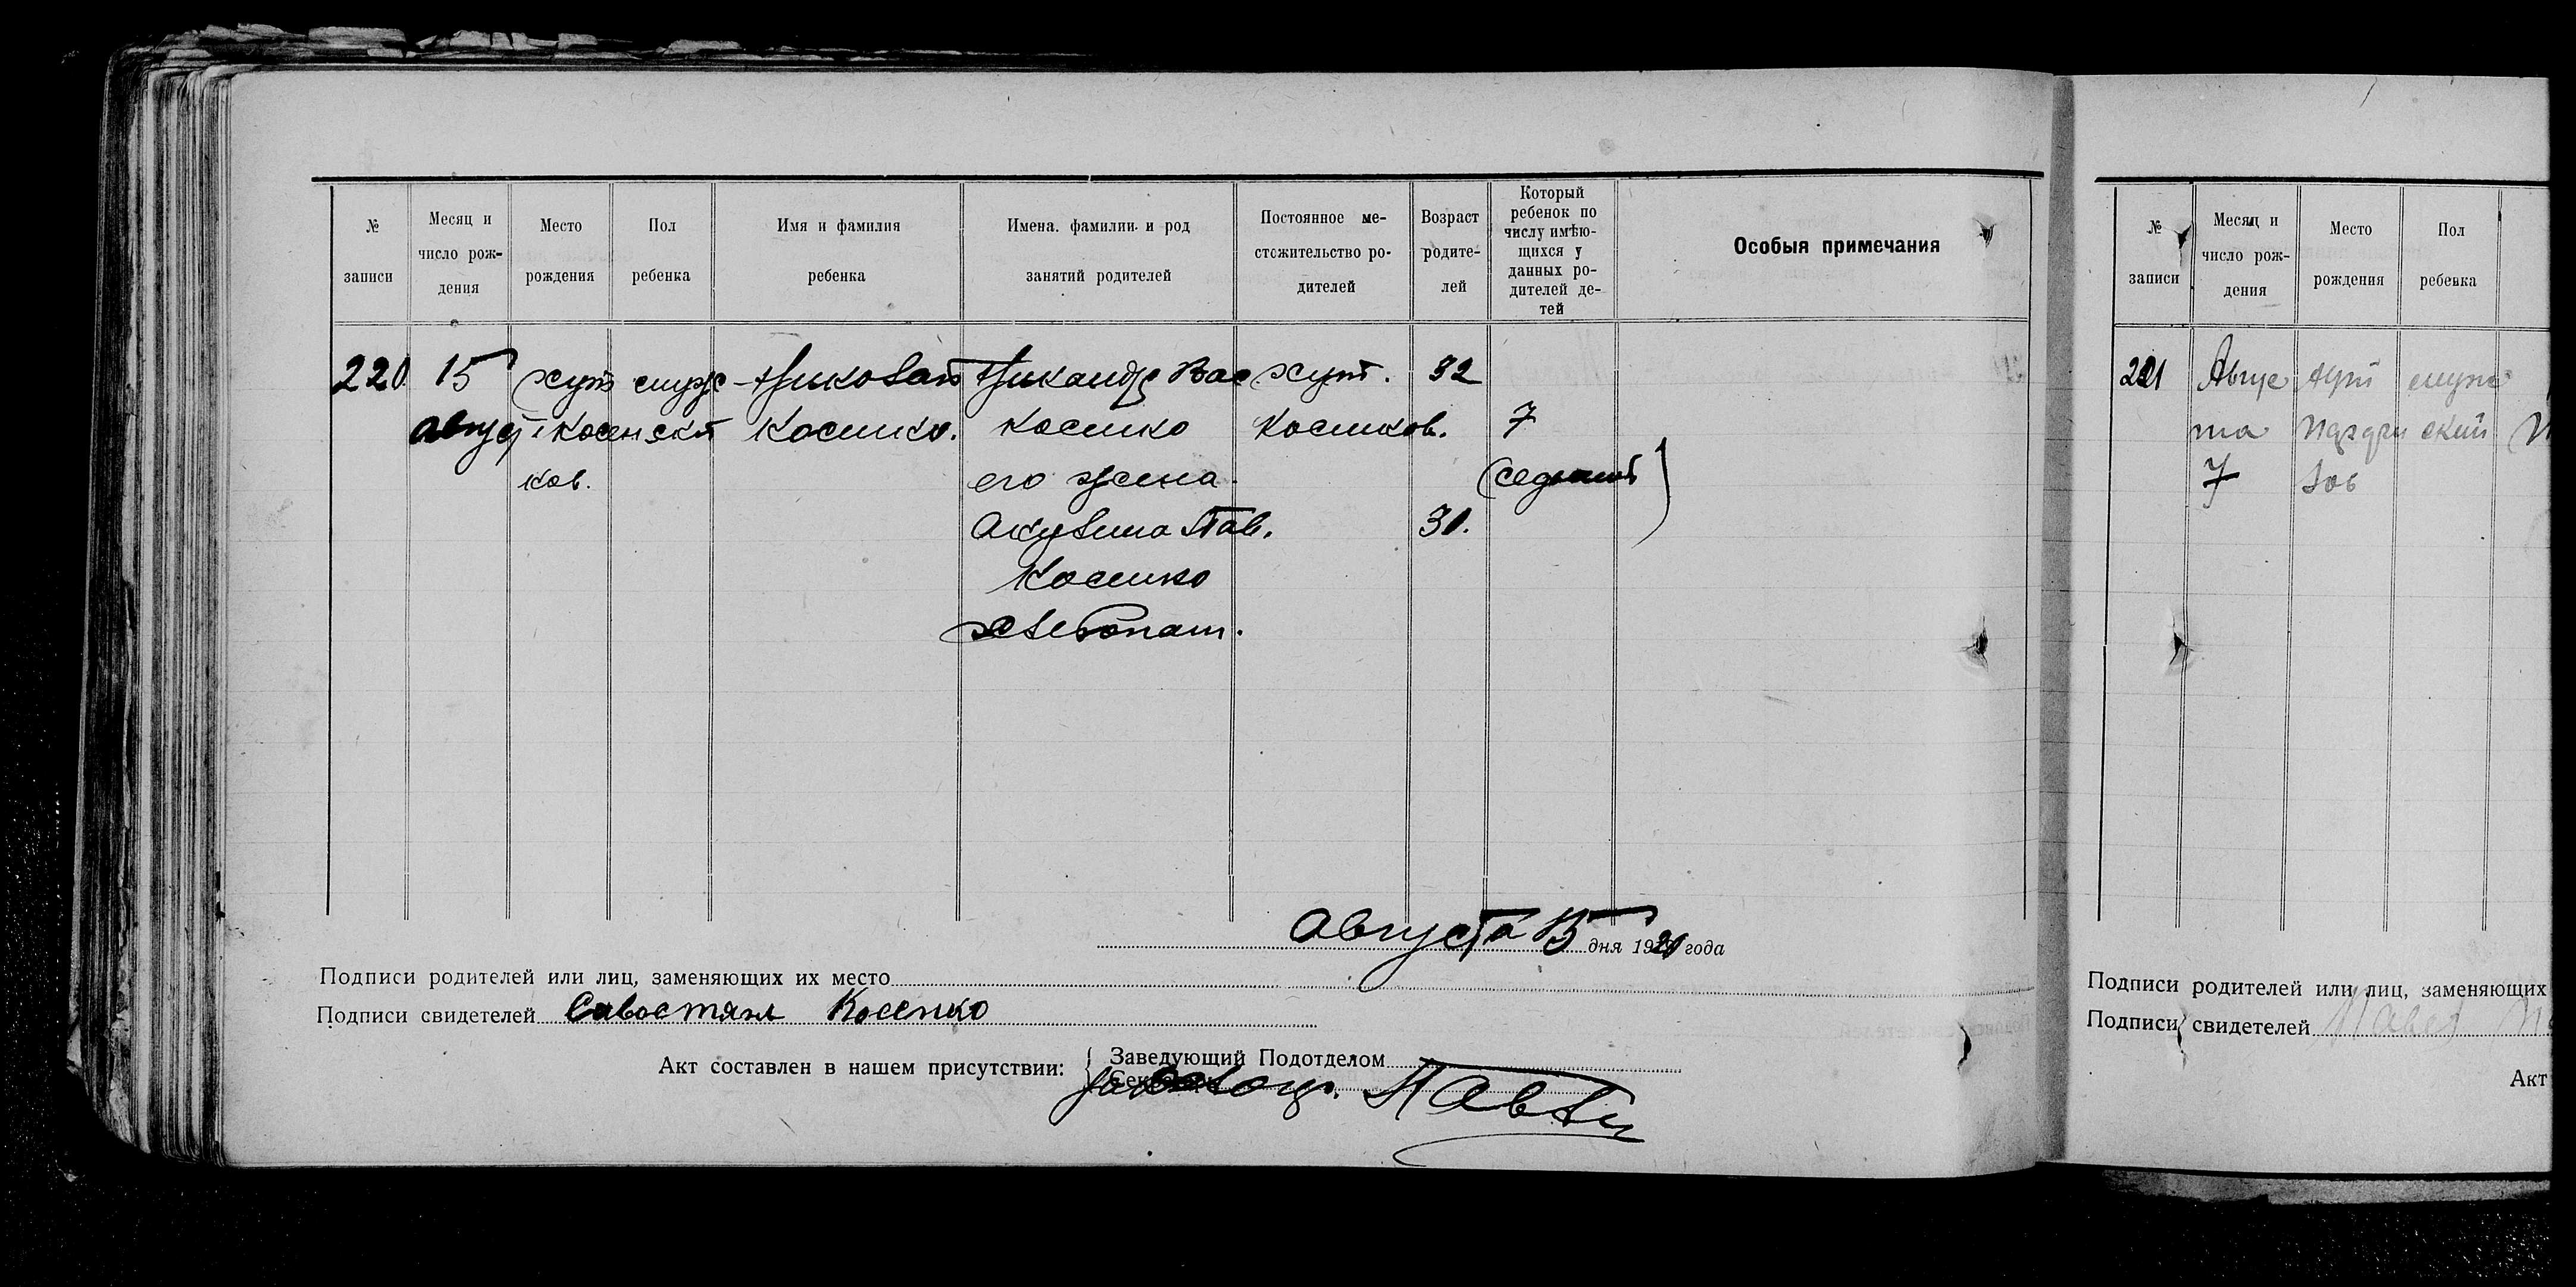 № записи
Месяц и число рождения
Место рождения
Пол ребенка
Имя и фамилия ребенка
Имена. фамилии. и род занятий родителей
Постоянное местожительство родителей
Возраст родителей
Который ребенок по числу имѣющихся у данных родителей детей
Особыя примечания
220 15 хут муж Николай Никандр Вас хут. 32
август Косенко. Косенко Косенков. 7
ков. его жена (седьмой)
Акулина Пав. 30.
Косенко
хлебопаш.
Августа 15 дня 1920 года
Подписи родителей или лиц, заменяющих их место
Подписи свидетелей Савостян Косенко
Акт составлен в нашем присутствии: Заведующий Подотделом
№ записи
Месяц и число рождения
Место рождения
Пол ребенка
221 Авгус хут мужс
та кий
7 зов
Подписи родителей или лиц, заменяющих
Подписи свидетелей Павел
Акт